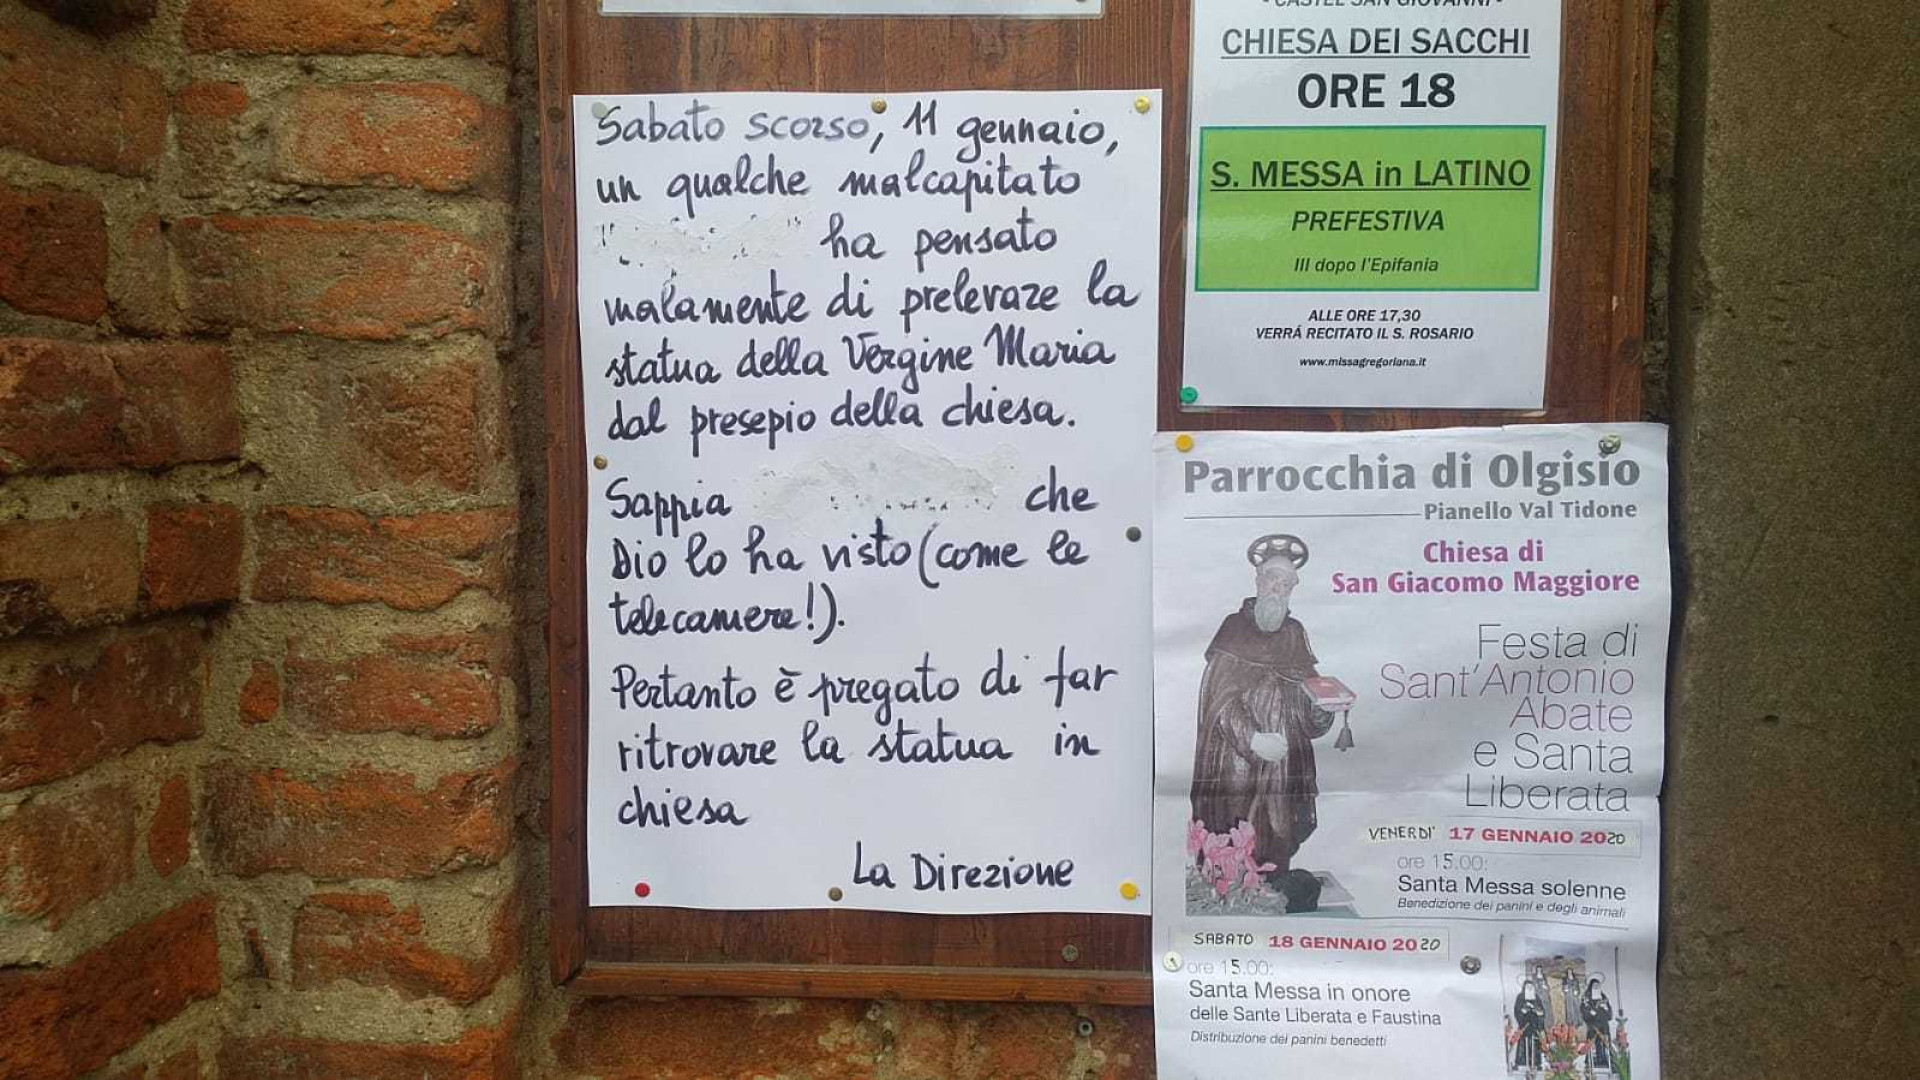 Sabato scorso, 11 gennaio,
un qualche malcapitato
ha pensato
malamente di prelevare la
statua della Vergine Maria
dal presepio della chiesa.
Sappia che
Dio lo ha visto (come le
telecamere!).
Pertanto è pregato di far
ritrovare la statua in
chiesa
La Direzione
- CASTEL SAN GIOVANNI -
CHIESA DEI SACCHI
ORE 18
S. MESSA in LATINO
PREFESTIVA
III dopo l'Epifania
ALLE ORE 17,30
VERRÁ RECITATO IL S. ROSARIO
www.missagregoriana.it
Parrocchia di Olgisio
Pianello Val Tidone
Chiesa di
San Giacomo Maggiore
Festa di
Sant'Antonio
Abate
e Santa
Liberata
VENERDI' 17 GENNAIO 2020
ore 15.00:
Santa Messa solenne
Benedizione dei panini e degli animali
SABATO 18 GENNAIO 2020
ore 15.00:
Santa Messa in onore
delle Sante Liberata e Faustina
Distribuzione dei panini benedetti